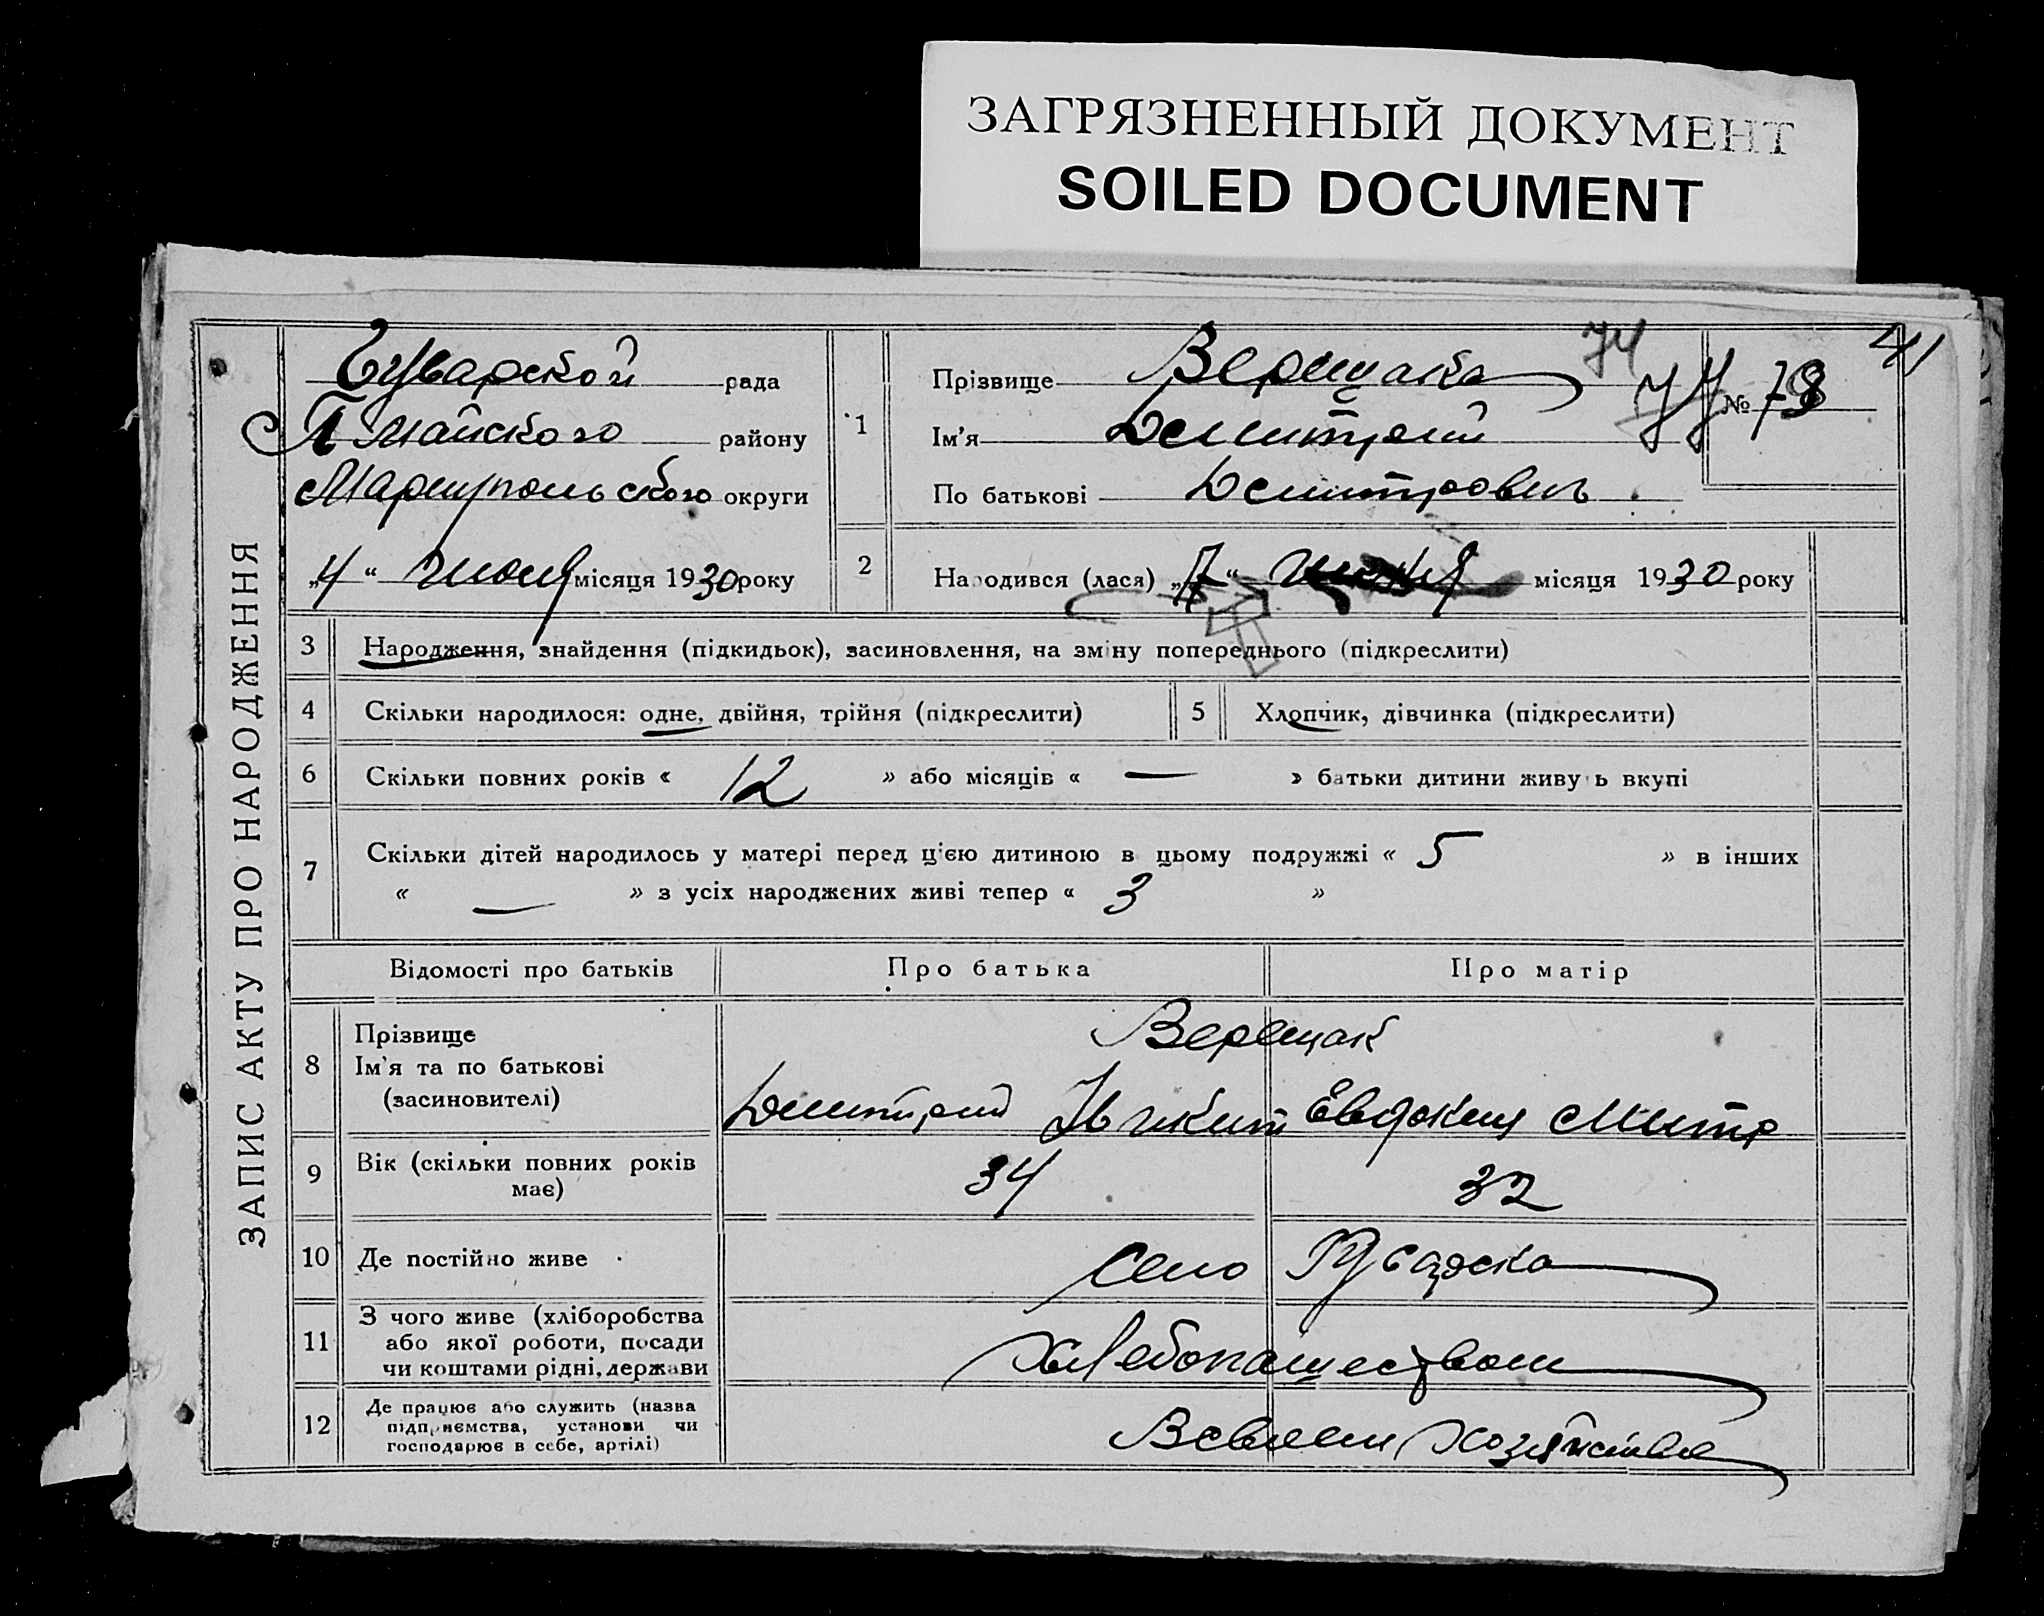 ЗАГРЯЗНЕННЫЙ ДОКУМЕНТ
SOILED DOCUMENT
ЗАПИС АКТУ ПРО НАРОДЖЕННЯ
рада
Майского району
Мариупольского округи
„4“ июня місяця 1930 року
41
74
77
№ 78
1 Прізвище Верещака
Ім'я Дмитрий
По батькові Дмитрович
2 Народився (лася) місяця 1930 року
3 Народження, знайдення (підкидьок), засиновлення, на зміну попереднього (підкреслити)
4 Скільки народилося: одне, двійня, трійня (підкреслити)
5 Хлопчик, дівчинка (підкреслити)
6 Скільки повних років « 12 » або місяців « — » батьки дитини живуть вкупі
7 Скільки дітей народилось у матері перед цією дитиною в цьому подружжі « 5 » в інших
« — » з усіх народжених живі тепер « 3 »
Відомості про батьків Про батька Про матір
8 Прізвище
Ім'я та по батькові
(засиновителі)
Верещак
Дмитрий Никит Евдокия Митр
9 Вік (скільки повних років
має)
34 32
10 Де постійно живе
село
11 З чого живе (хліборобства
або якої роботи, посади
чи коштами рідні, держави
Хлебопашеством
12 Де працює або служить (назва
підприємства, установи чи
господарює в себе, артілі)
В своем хозяйстве